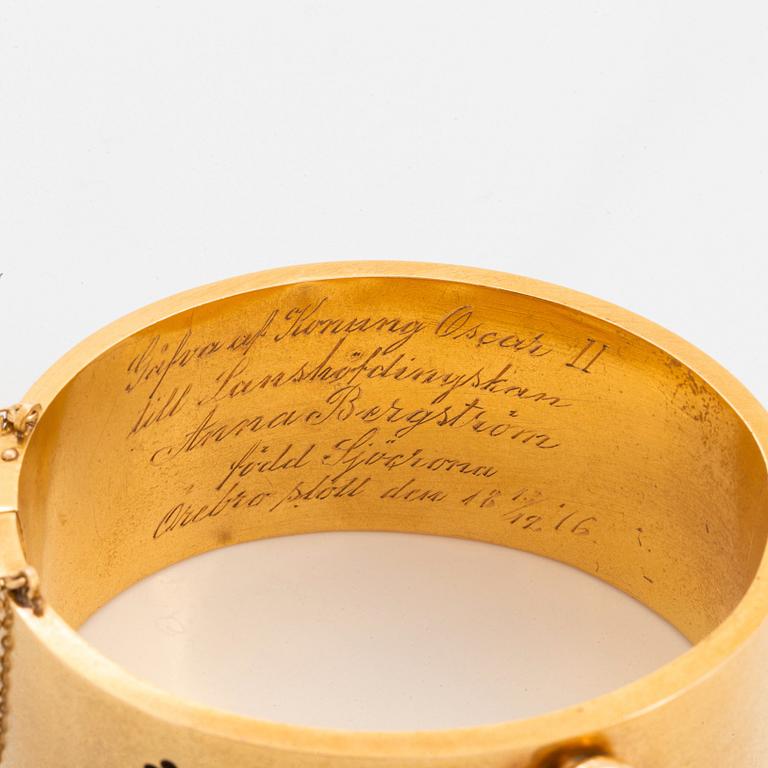 Gåfva af Konung Oscar II
till Landshöfdingskan
Anna Bergström
född Sjöcrona
Örebro slott den 18 13/12 76